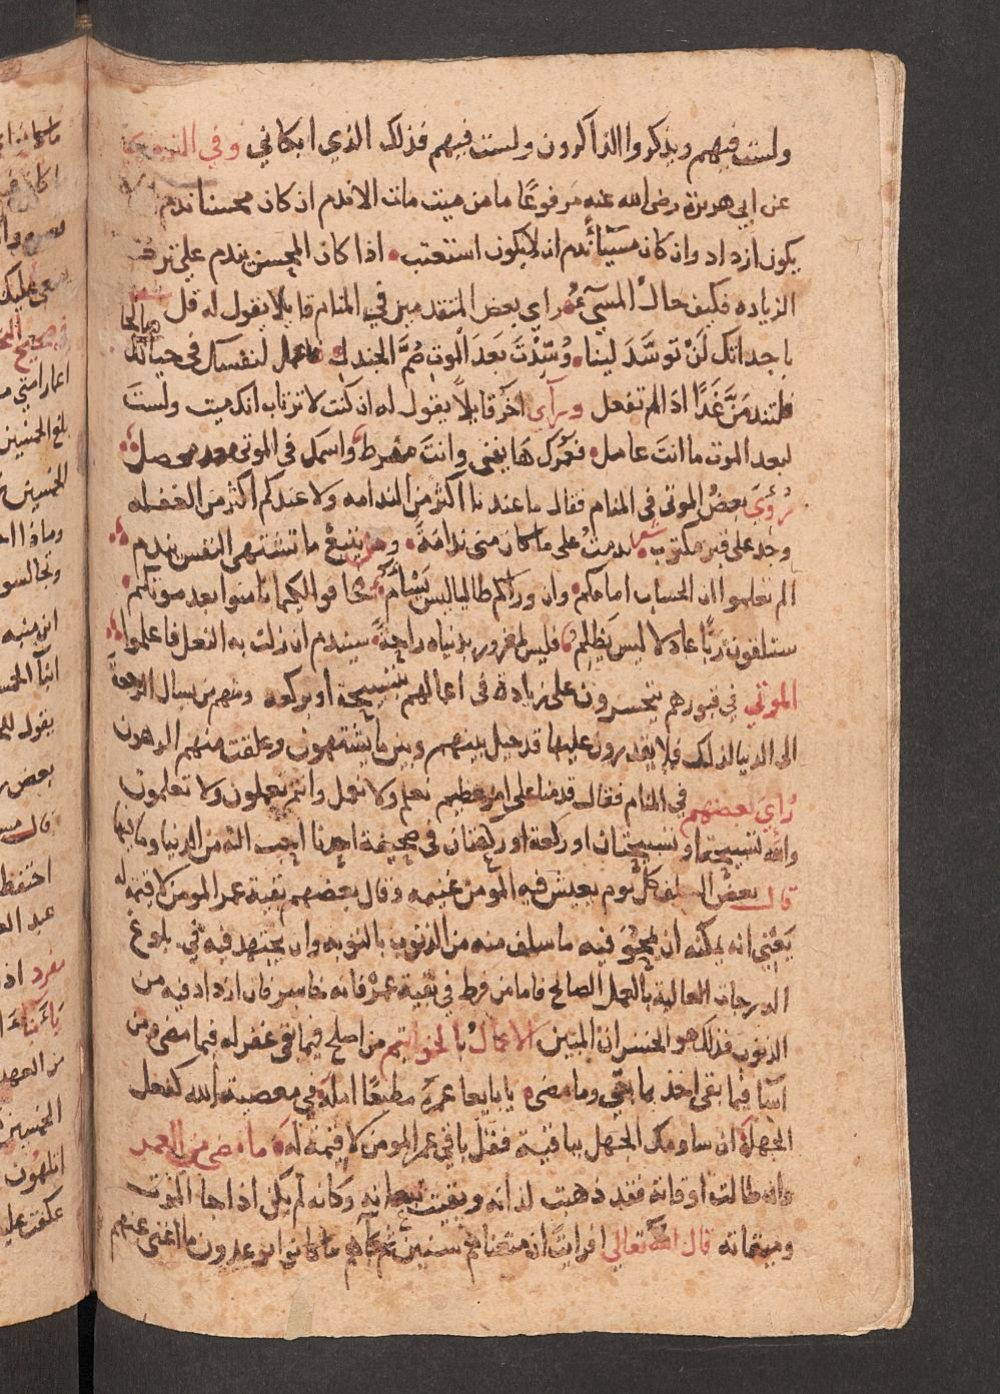 ولست فيهم ويذكروا الذاكرون ولست فيهم فذلك الذي ابكاني وفي الترمذي
عن ابي هريرة رضى الله عنه مرفوعًا ما من ميت مات الا ندم ان كان محسنا ندم
يكون ازداد وان كان مسيئا ندم ان لا يكون استعتب اذا كان المحسن يندم علي ترك
الزياده فكيف حال المسيء راي بعض المتقدمين في المنام قايلا يقول له قل
يا خد انك لَنْ توسَّدَ لينا وُسِّدْتَ بَعدَ الموت صُمَّ الجندل فاعمل لنفسك في حياتك صالحا
فلتندمَنَّ غَدًا اذا لم تفعل وراي آخر قايلاً يقول له ان كنت لا ترتاب انك ميت ولستَ
لبعد الموت ما انتَ عامل فعمرك هَا يفنى وانتَ مفرط واسمك في الموتى معد محصل
رُؤيَ بعضُ الموتى في المنام فقال ما عندنا اكثر من الندامه ولا عندكم اكثر من الغفله
وجد على قبر مكتوب ندمتُ على ما كان منى ندامَةً ومن يتبعْ ما تشتهى النفس يندم
الم تعلموا ان الحساب امامكم وان وراكم طالبا ليس يَسْأم فخافوا لكيما تامنوا بعد موتكم
ستلقون ربًّا عادلا ليس يَظلم فليس لمغرور بدنياه راحةً سيندم ان زلت به النعل فاعلموا
الموتي في قبورهم يتحسرون على زيادة في اعمالهم بتسبيحة او بركعه ومنهم من يسال الرجعة
الى الدنيا لذلك فلا يقدرون عليها قد حيل بينهم وبين ما يشتهون وغلقت منهم الرهون
رُاي بعضهم في المنام فقال قدمنا على امر عظيم نعلم ولا نعمل وانتم تعملون ولا تعلمون
والله لتسبيحة او تسبيحتان او ركعة او ركعتان في صحيفة احدنا احب اليه من الدنيا وما فيها
قال بعض السلف كل يوم يعيش فيه المومن غنيمه وقال بعضهم بقية عمر المومن لا قيمة له
يَعْنِي انه يمكنه ان يمحُوَ فيه ما سلف منه من الذنوب بالتوبه وان يجتهد فيه في بلوغ
الدرجات العالية بالعمل الصالح فاما من فرط في بقية عمرْ فانه خاسر فان ازداد فيه من
الذنوب فذلك هو الخسران المبين الاعمالُ بالخواتيم من اصلح فيما بقى غفر له فيما مضى ومن
اسا فيما بقى اخذ بما بقى وما مضى يا بايعا عمرَهُ مطيعًا املهُ في معصية الله كفعل
الجهله ان ساومك الجهل بباقيه فقل باقي عمر المومن لا قيمة له ما مضى من العمر
وان طالت اوقاته فقد ذهبت لذاته وبقيت تبعاته وكانه لم يكن اذا جا الموت
وميقاته قال الله تعالى افرايت ان متعناهم سنين ثم جاهم ما كانوا يوعدون ما اغنى عنهم